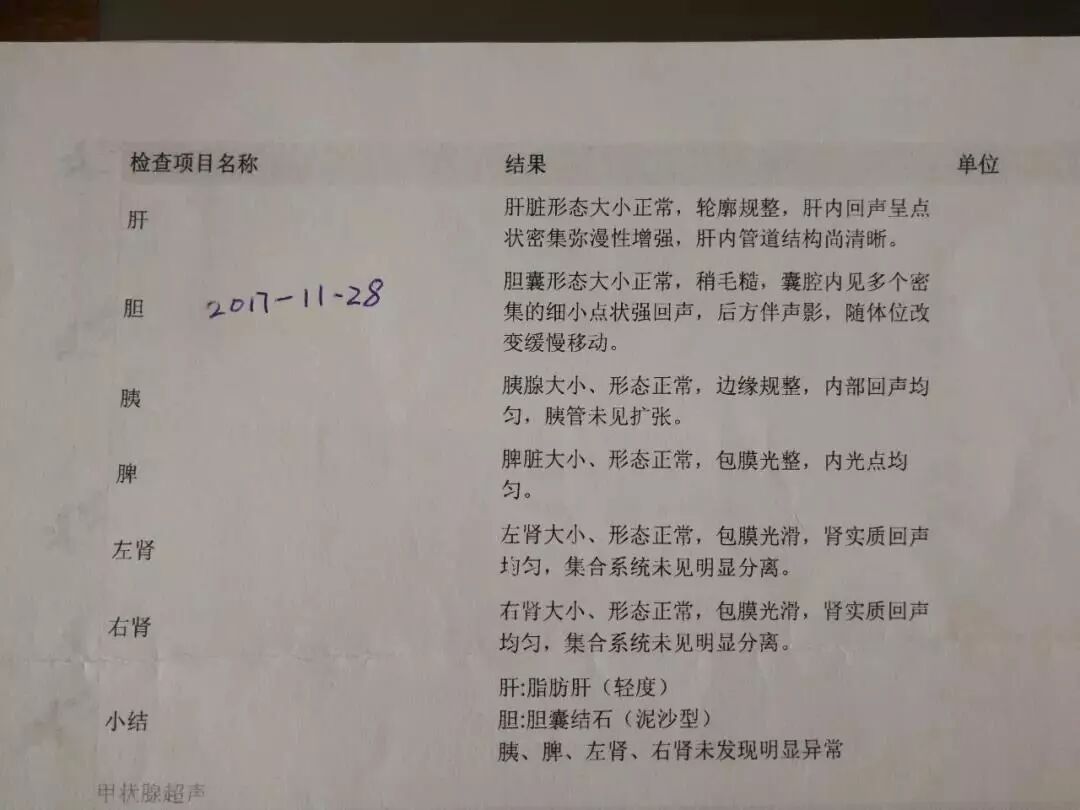 检查项目名称 结果 单位
肝 肝脏形态大小正常，轮廓规整，肝内回声呈点
状密集弥漫性增强，肝内管道结构尚清晰。
胆 2017-11-28 胆囊形态大小正常，稍毛糙，囊腔内见多个密
集的细小点状强回声，后方伴声影，随体位改
变缓慢移动。
胰 胰腺大小、形态正常，边缘规整，内部回声均
匀，胰管未见扩张。
脾 脾脏大小、形态正常，包膜光整，内光点均
匀。
左肾 左肾大小、形态正常，包膜光滑，肾实质回声
均匀，集合系统未见明显分离。
右肾 右肾大小、形态正常，包膜光滑，肾实质回声
均匀，集合系统未见明显分离。
小结 肝:脂肪肝（轻度）
胆:胆囊结石（泥沙型）
胰、脾、左肾、右肾未发现明显异常
甲状腺超声